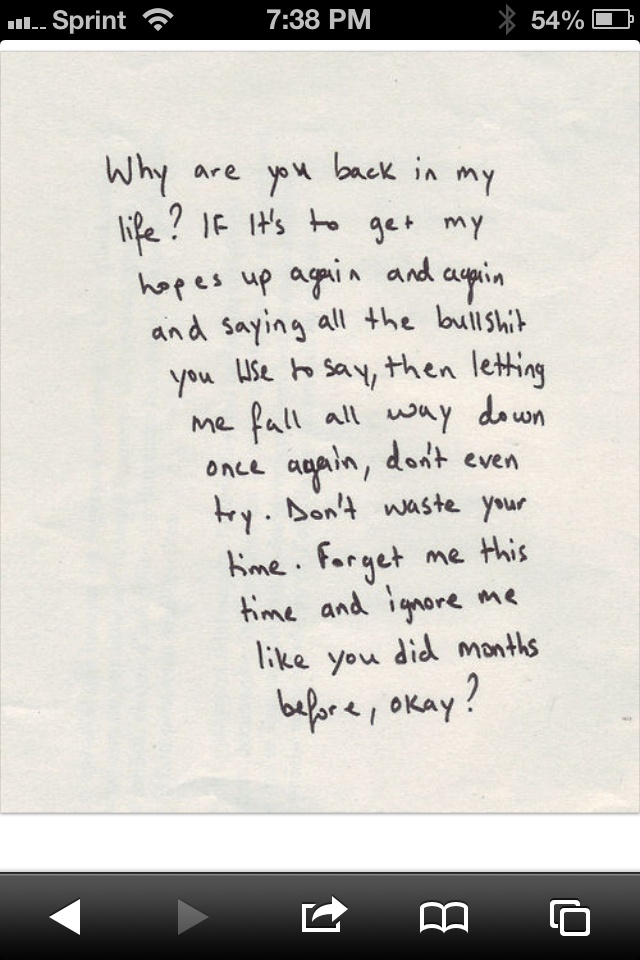 Sprint 7:38 PM 54%
Why are you back in my
life? IF It's to get my
hopes up again and again
and saying all the bullshit
you Use to say, then letting
me fall all way down
once again, don't even
try. Don't waste your
time. Forget me this
time and ignore me
like you did months
before, okay?